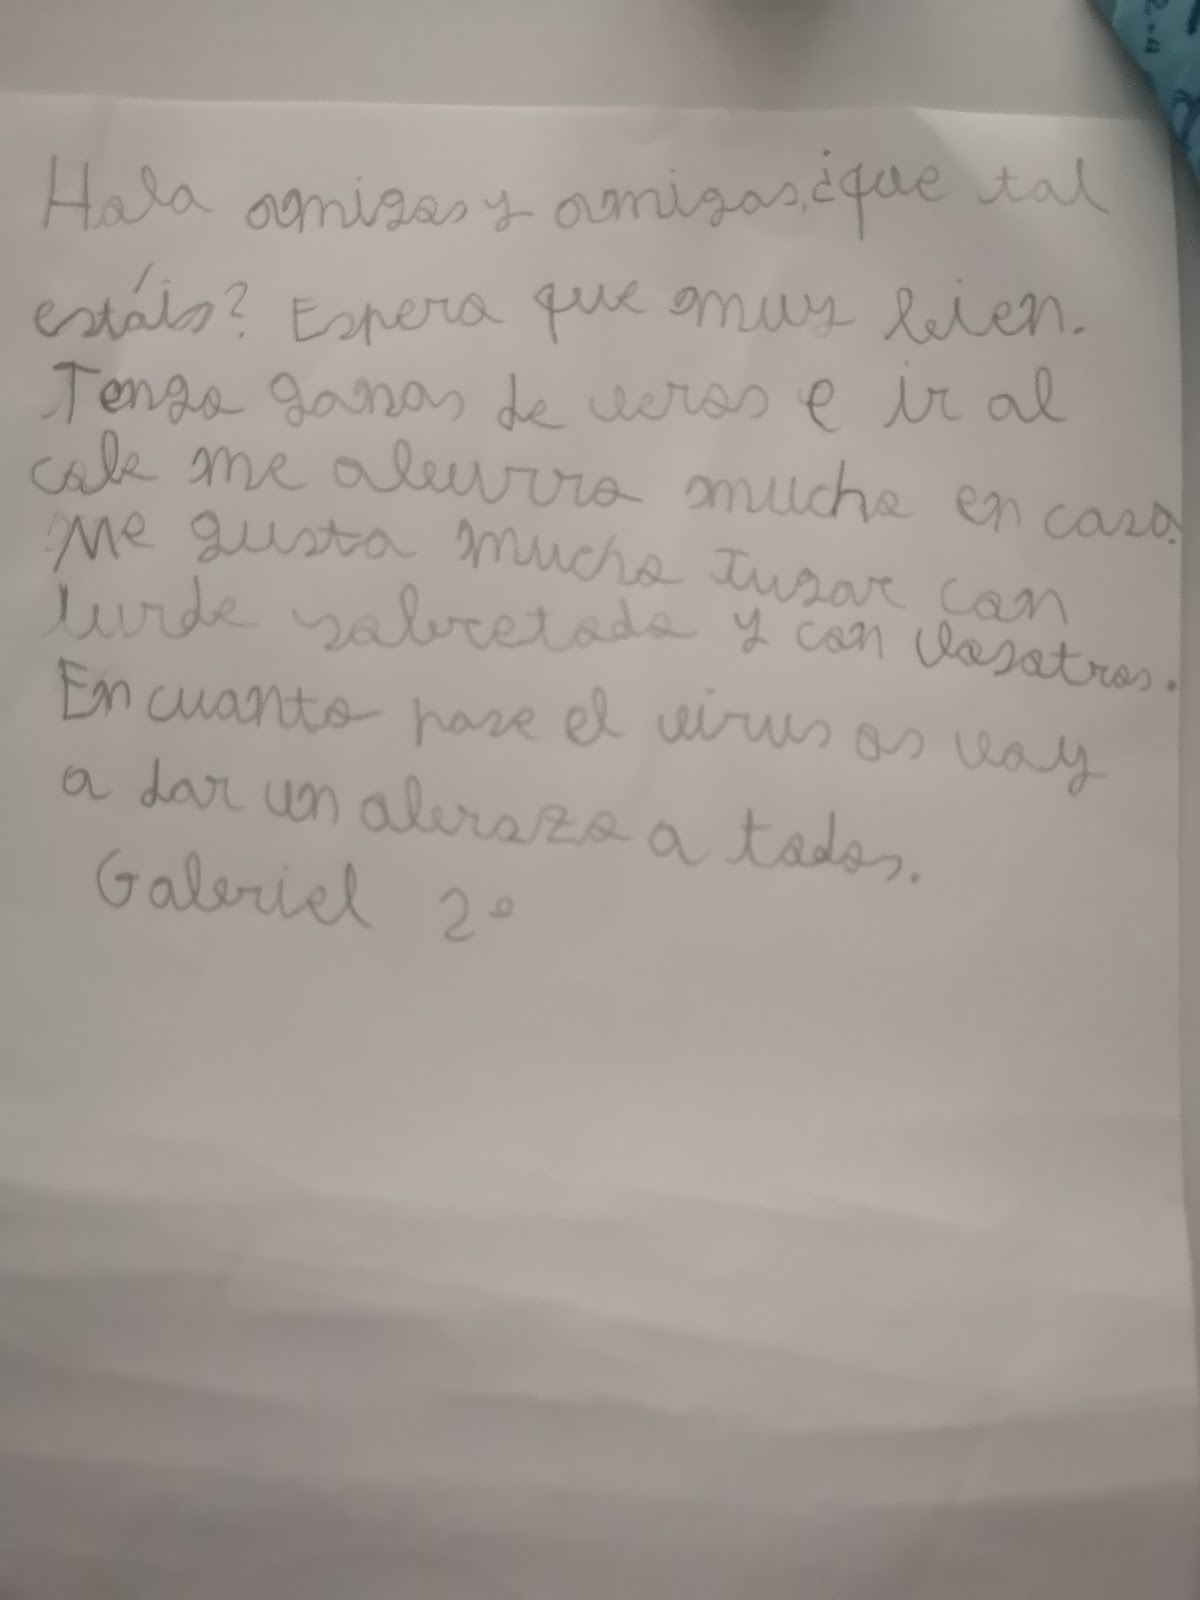 Hola amigos y amigas, ¿que tal
estáis? Espero que muy bien.
Tengo ganas de veros e ir al
cole me aburro mucho en casa.
Me gusta mucho jugar con
Iurde sobretodo y con vosotros.
En cuanto pase el virus os voy
a dar un abrazo a todos.
Gabriel 2º